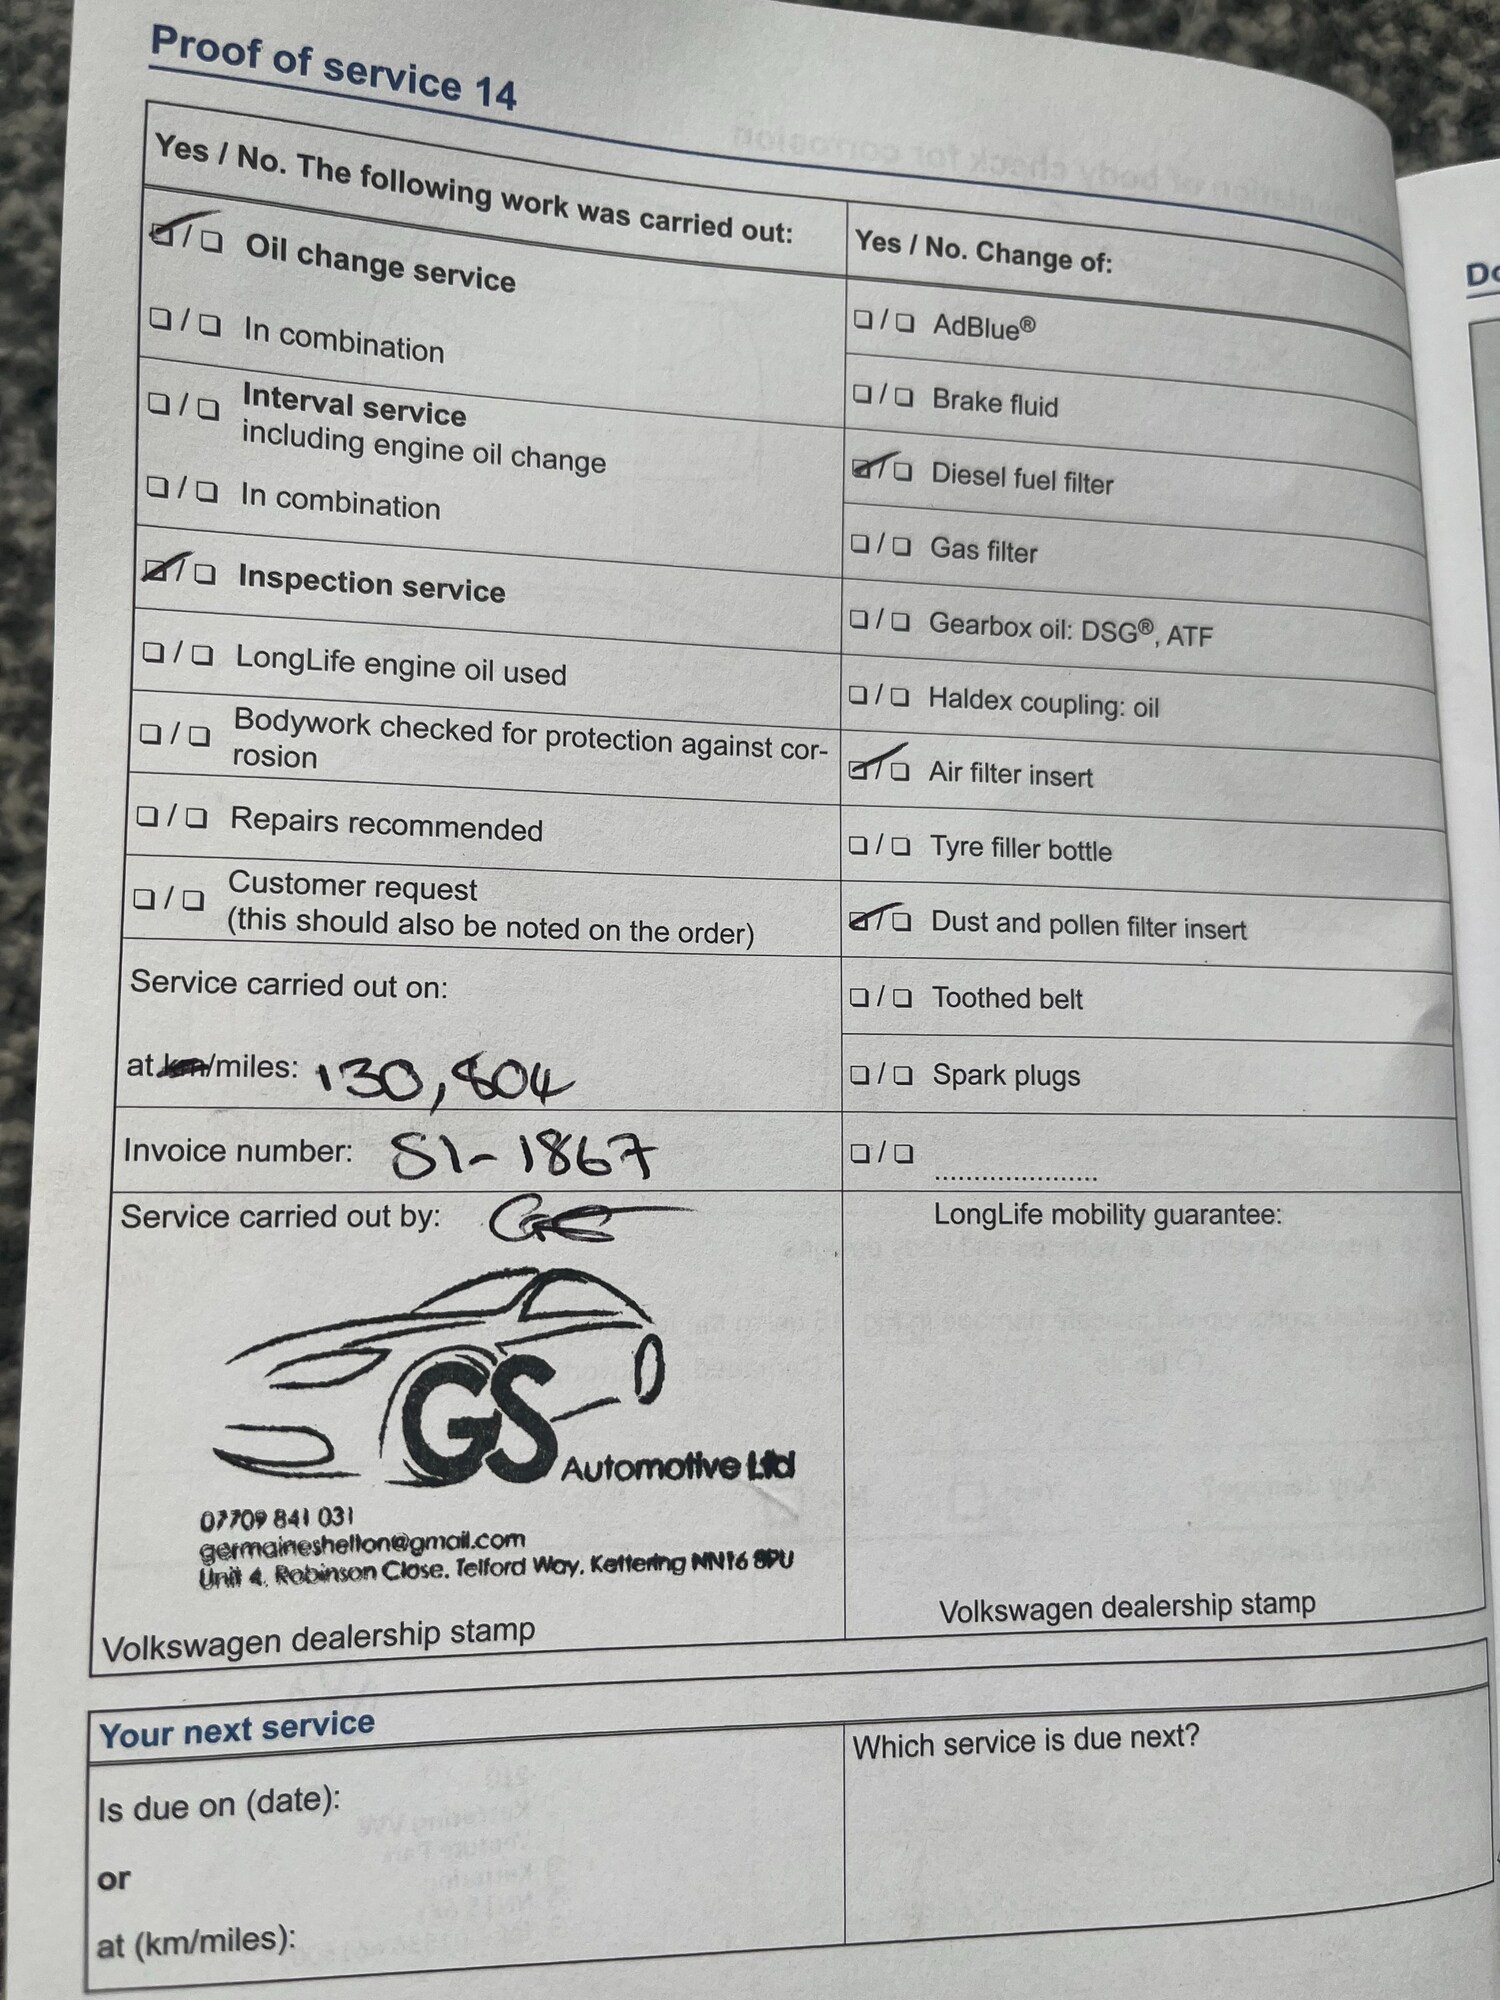 Proof of service 14
Yes / No. The following work was carried out:
☑ / ❏ Oil change service
❏ / ❏ In combination
❏ / ❏ Interval service
including engine oil change
❏ / ❏ In combination
☑ / ❏ Inspection service
❏ / ❏ LongLife engine oil used
❏ / ❏ Bodywork checked for protection against cor-
rosion
❏ / ❏ Repairs recommended
❏ / ❏ Customer request
(this should also be noted on the order)
Service carried out on:
at km/miles: 130,804
Invoice number: SI-1867
Service carried out by:
GS Automotive Ltd
07709 841 031
germaineshelton@gmail.com
Unit 4, Robinson Close, Telford Way, Kettering NN16 8PU
Volkswagen dealership stamp
Yes / No. Change of:
❏ / ❏ AdBlue®
❏ / ❏ Brake fluid
☑ / ❏ Diesel fuel filter
❏ / ❏ Gas filter
❏ / ❏ Gearbox oil: DSG®, ATF
❏ / ❏ Haldex coupling: oil
☑ / ❏ Air filter insert
❏ / ❏ Tyre filler bottle
☑ / ❏ Dust and pollen filter insert
❏ / ❏ Toothed belt
❏ / ❏ Spark plugs
❏ / ❏ ......................
LongLife mobility guarantee:
Volkswagen dealership stamp
Your next service
Is due on (date):
or
at (km/miles):
Which service is due next?